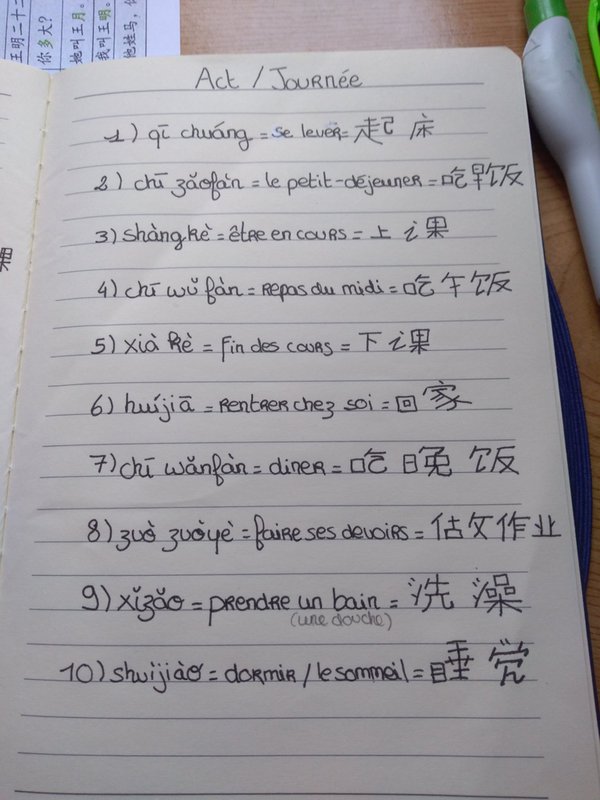 王明二十二
你多大?
她叫王月。
我叫王明。
他姓马，你
Act / Journée
1) qī chuáng = se lever = 起床
2) chī zǎofàn = le petit-déjeuner = 吃早饭
3) shàng kè = être en cours = 上课
4) chī wǔ fàn = repas du midi = 吃午饭
5) xià kè = fin des cours = 下课
6) huíjiā = rentrer chez soi = 回家
7) chī wǎnfàn = diner = 吃晚饭
8) zuò zuòyè = faire ses devoirs = 做作业
9) xǐzǎo = prendre un bain = 洗澡
(une douche)
10) shuijiào = dormir / le sommeil = 睡觉